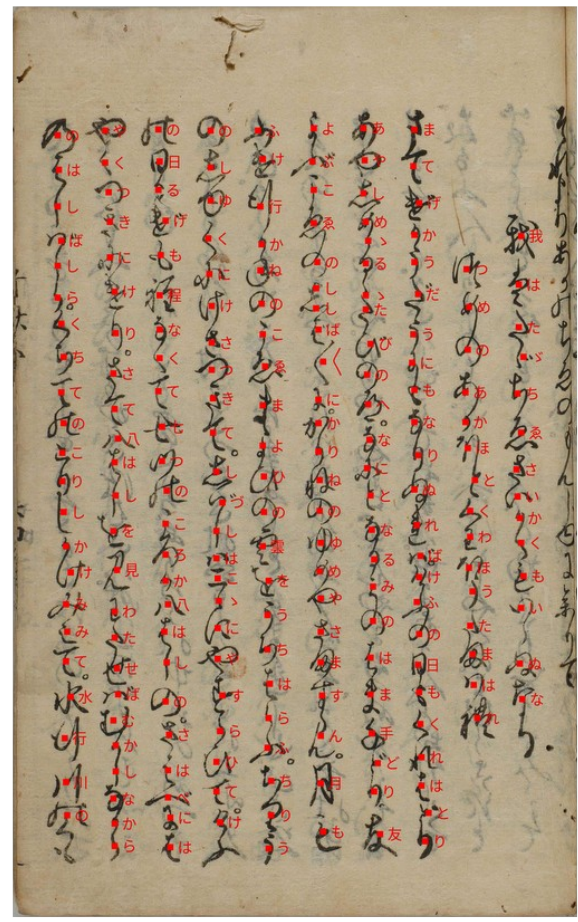 我はたゞちゑさいかくもいぬな
つめのあかまとくわほうたまはれ
まてげかうだうにもなりぬればけふの日もくれはとり
あやしめゝるゝたびの八。なにとなるみのはま手どり友
よぶこゑのししば〱に。かりねのゆめやさますん。月も
ふけ行かねのこゑまよひの雲をうちはらふ。ちりう
のしゆくにけさつきてしづしはこゝにやすらひて。けふ
の日るげも程なくてとつのころか八はしの。さはべには
やくつきにけり。さて八はしを見わたせばむかしなから
のはしばしら。くちてのこりしかけみみて。水行川の